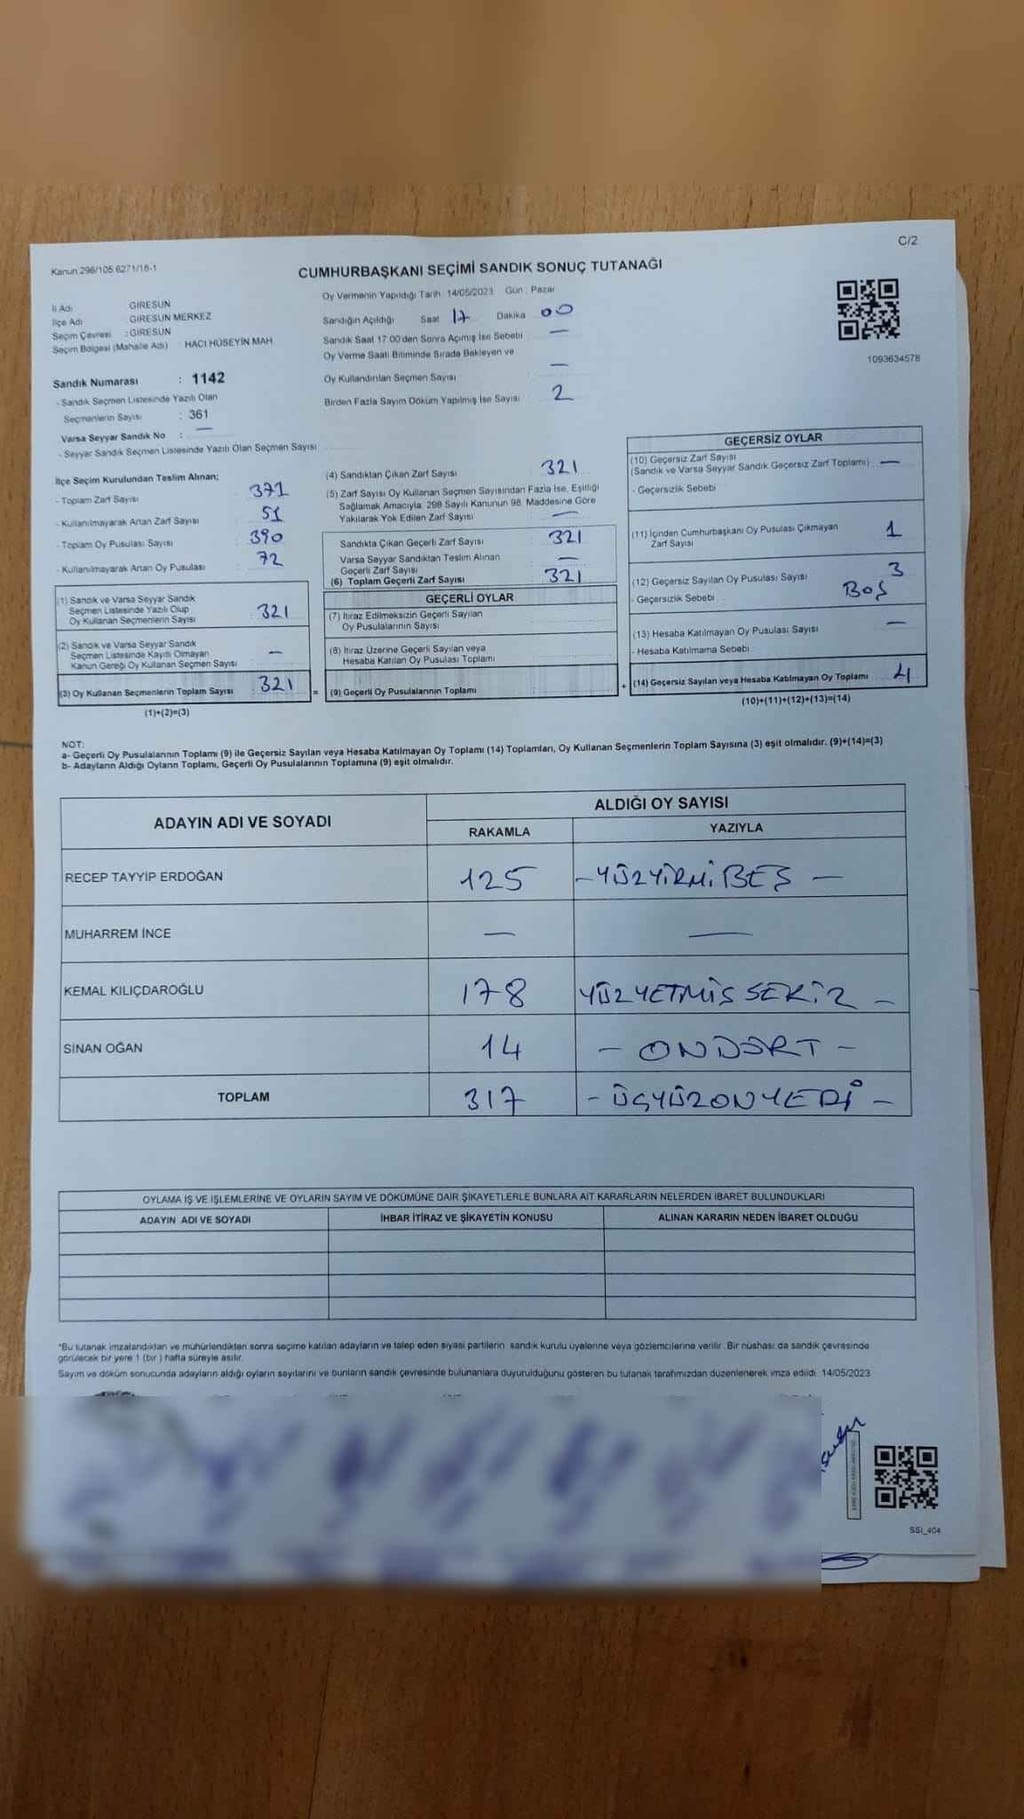 C/2
Kanun 298/105 6271/18-1
CUMHURBAŞKANI SEÇİMİ SANDIK SONUÇ TUTANAĞI
İl Adı GİRESUN
İlçe Adı GİRESUN MERKEZ
Seçim Çevresi : GİRESUN
Seçim Bölgesi (Mahalle Adı) HACI HÜSEYİN MAH
Sandık Numarası : 1142
- Sandık Seçmen Listesinde Yazılı Olan
Seçmenlerin Sayısı : 361
Varsa Seyyar Sandık No : —
- Seyyar Sandık Seçmen Listesinde Yazılı Olan Seçmen Sayısı
Oy Vermenin Yapıldığı Tarih 14/05/2023 Gün : Pazar
Sandığın Açıldığı Saat 17 Dakika 00
Sandık Saat 17.00'den Sonra Açımış İse Sebebi —
Oy Verme Saati Bitiminde Sırada Bekleyen ve
Oy Kullandırılan Seçmen Sayısı —
Birden Fazla Sayım Döküm Yapılmış İse Sayısı 2
1093634578
İlçe Seçim Kurulundan Teslim Alınan;
- Toplam Zarf Sayısı 371
- Kullanılmayarak Artan Zarf Sayısı 51
- Toplam Oy Pusulası Sayısı 390
- Kullanılmayarak Artan Oy Pusulası 72
(1) Sandık ve Varsa Seyyar Sandık
Seçmen Listesinde Yazılı Olup
Oy Kullanan Seçmenlerin Sayısı 321
(2) Sandık ve Varsa Seyyar Sandık
Seçmen Listesinde Kayıtlı Olmayan
Kanun Gereği Oy Kullanan Seçmen Sayısı —
(3) Oy Kullanan Seçmenlerin Toplam Sayısı 321 =
(1)+(2)=(3)
(4) Sandıktan Çıkan Zarf Sayısı 321
(5) Zarf Sayısı Oy Kullanan Seçmen Sayısından Fazla İse, Eşitliği
Sağlamak Amacıyla, 298 Sayılı Kanunun 98. Maddesine Göre
Yakılarak Yok Edilen Zarf Sayısı —
Sandıkta Çıkan Geçerli Zarf Sayısı 321
Varsa Seyyar Sandıktan Teslim Alınan
Geçerli Zarf Sayısı —
(6) Toplam Geçerli Zarf Sayısı 321
GEÇERLİ OYLAR
(7) İtiraz Edilmeksizin Geçerli Sayılan
Oy Pusulalarının Sayısı
(8) İtiraz Üzerine Geçerli Sayılan veya
Hesaba Katılan Oy Pusulası Toplamı
(9) Geçerli Oy Pusulalarının Toplamı +
GEÇERSİZ OYLAR
(10) Geçersiz Zarf Sayısı
(Sandık ve Varsa Seyyar Sandık Geçersiz Zarf Toplamı) —
- Geçersizlik Sebebi
(11) İçinden Cumhurbaşkanı Oy Pusulası Çıkmayan
Zarf Sayısı 1
(12) Geçersiz Sayılan Oy Pusulası Sayısı 3
- Geçersizlik Sebebi BOŞ
(13) Hesaba Katılmayan Oy Pusulası Sayısı —
- Hesaba Katılmama Sebebi
(14) Geçersiz Sayılan veya Hesaba Katılmayan Oy Toplamı 4
(10)+(11)+(12)+(13)=(14)
NOT:
a- Geçerli Oy Pusulalarının Toplamı (9) ile Geçersiz Sayılan veya Hesaba Katılmayan Oy Toplamı (14) Toplamları, Oy Kullanan Seçmenlerin Toplam Sayısına (3) eşit olmalıdır. (9)+(14)=(3)
b- Adayların Aldığı Oyların Toplamı, Geçerli Oy Pusulalarının Toplamına (9) eşit olmalıdır.
ADAYIN ADI VE SOYADI
ALDIĞI OY SAYISI
RAKAMLA YAZIYLA
RECEP TAYYİP ERDOĞAN 125 – YÜZYİRMİBEŞ —
MUHARREM İNCE — —
KEMAL KILIÇDAROĞLU 178 YÜZYETMİŞSEKİZ –
SİNAN OĞAN 14 – ONDÖRT –
TOPLAM 317 – ÜÇYÜZONYEDİ –
OYLAMA İŞ VE İŞLEMLERİNE VE OYLARIN SAYIM VE DÖKÜMÜNE DAİR ŞİKAYETLERLE BUNLARA AİT KARARLARIN NELERDEN İBARET BULUNDUKLARI
ADAYIN ADI VE SOYADI İHBAR İTİRAZ VE ŞİKAYETİN KONUSU ALINAN KARARIN NEDEN İBARET OLDUĞU
*Bu tutanak imzalandıktan ve mühürlendikten sonra seçime katılan adayların ve talep eden siyasi partilerin sandık kurulu üyelerine veya gözlemcilerine verilir. Bir nüshası da sandık çevresinde
görülecek bir yere 1 (bir ) hafta süreyle asılır.
Sayım ve döküm sonucunda adayların aldığı oyların sayılarını ve bunların sandık çevresinde bulunanlara duyurulduğunu gösteren bu tutanak tarafımızdan düzenlenerek imza edildi. 14/05/2023
SSI_404